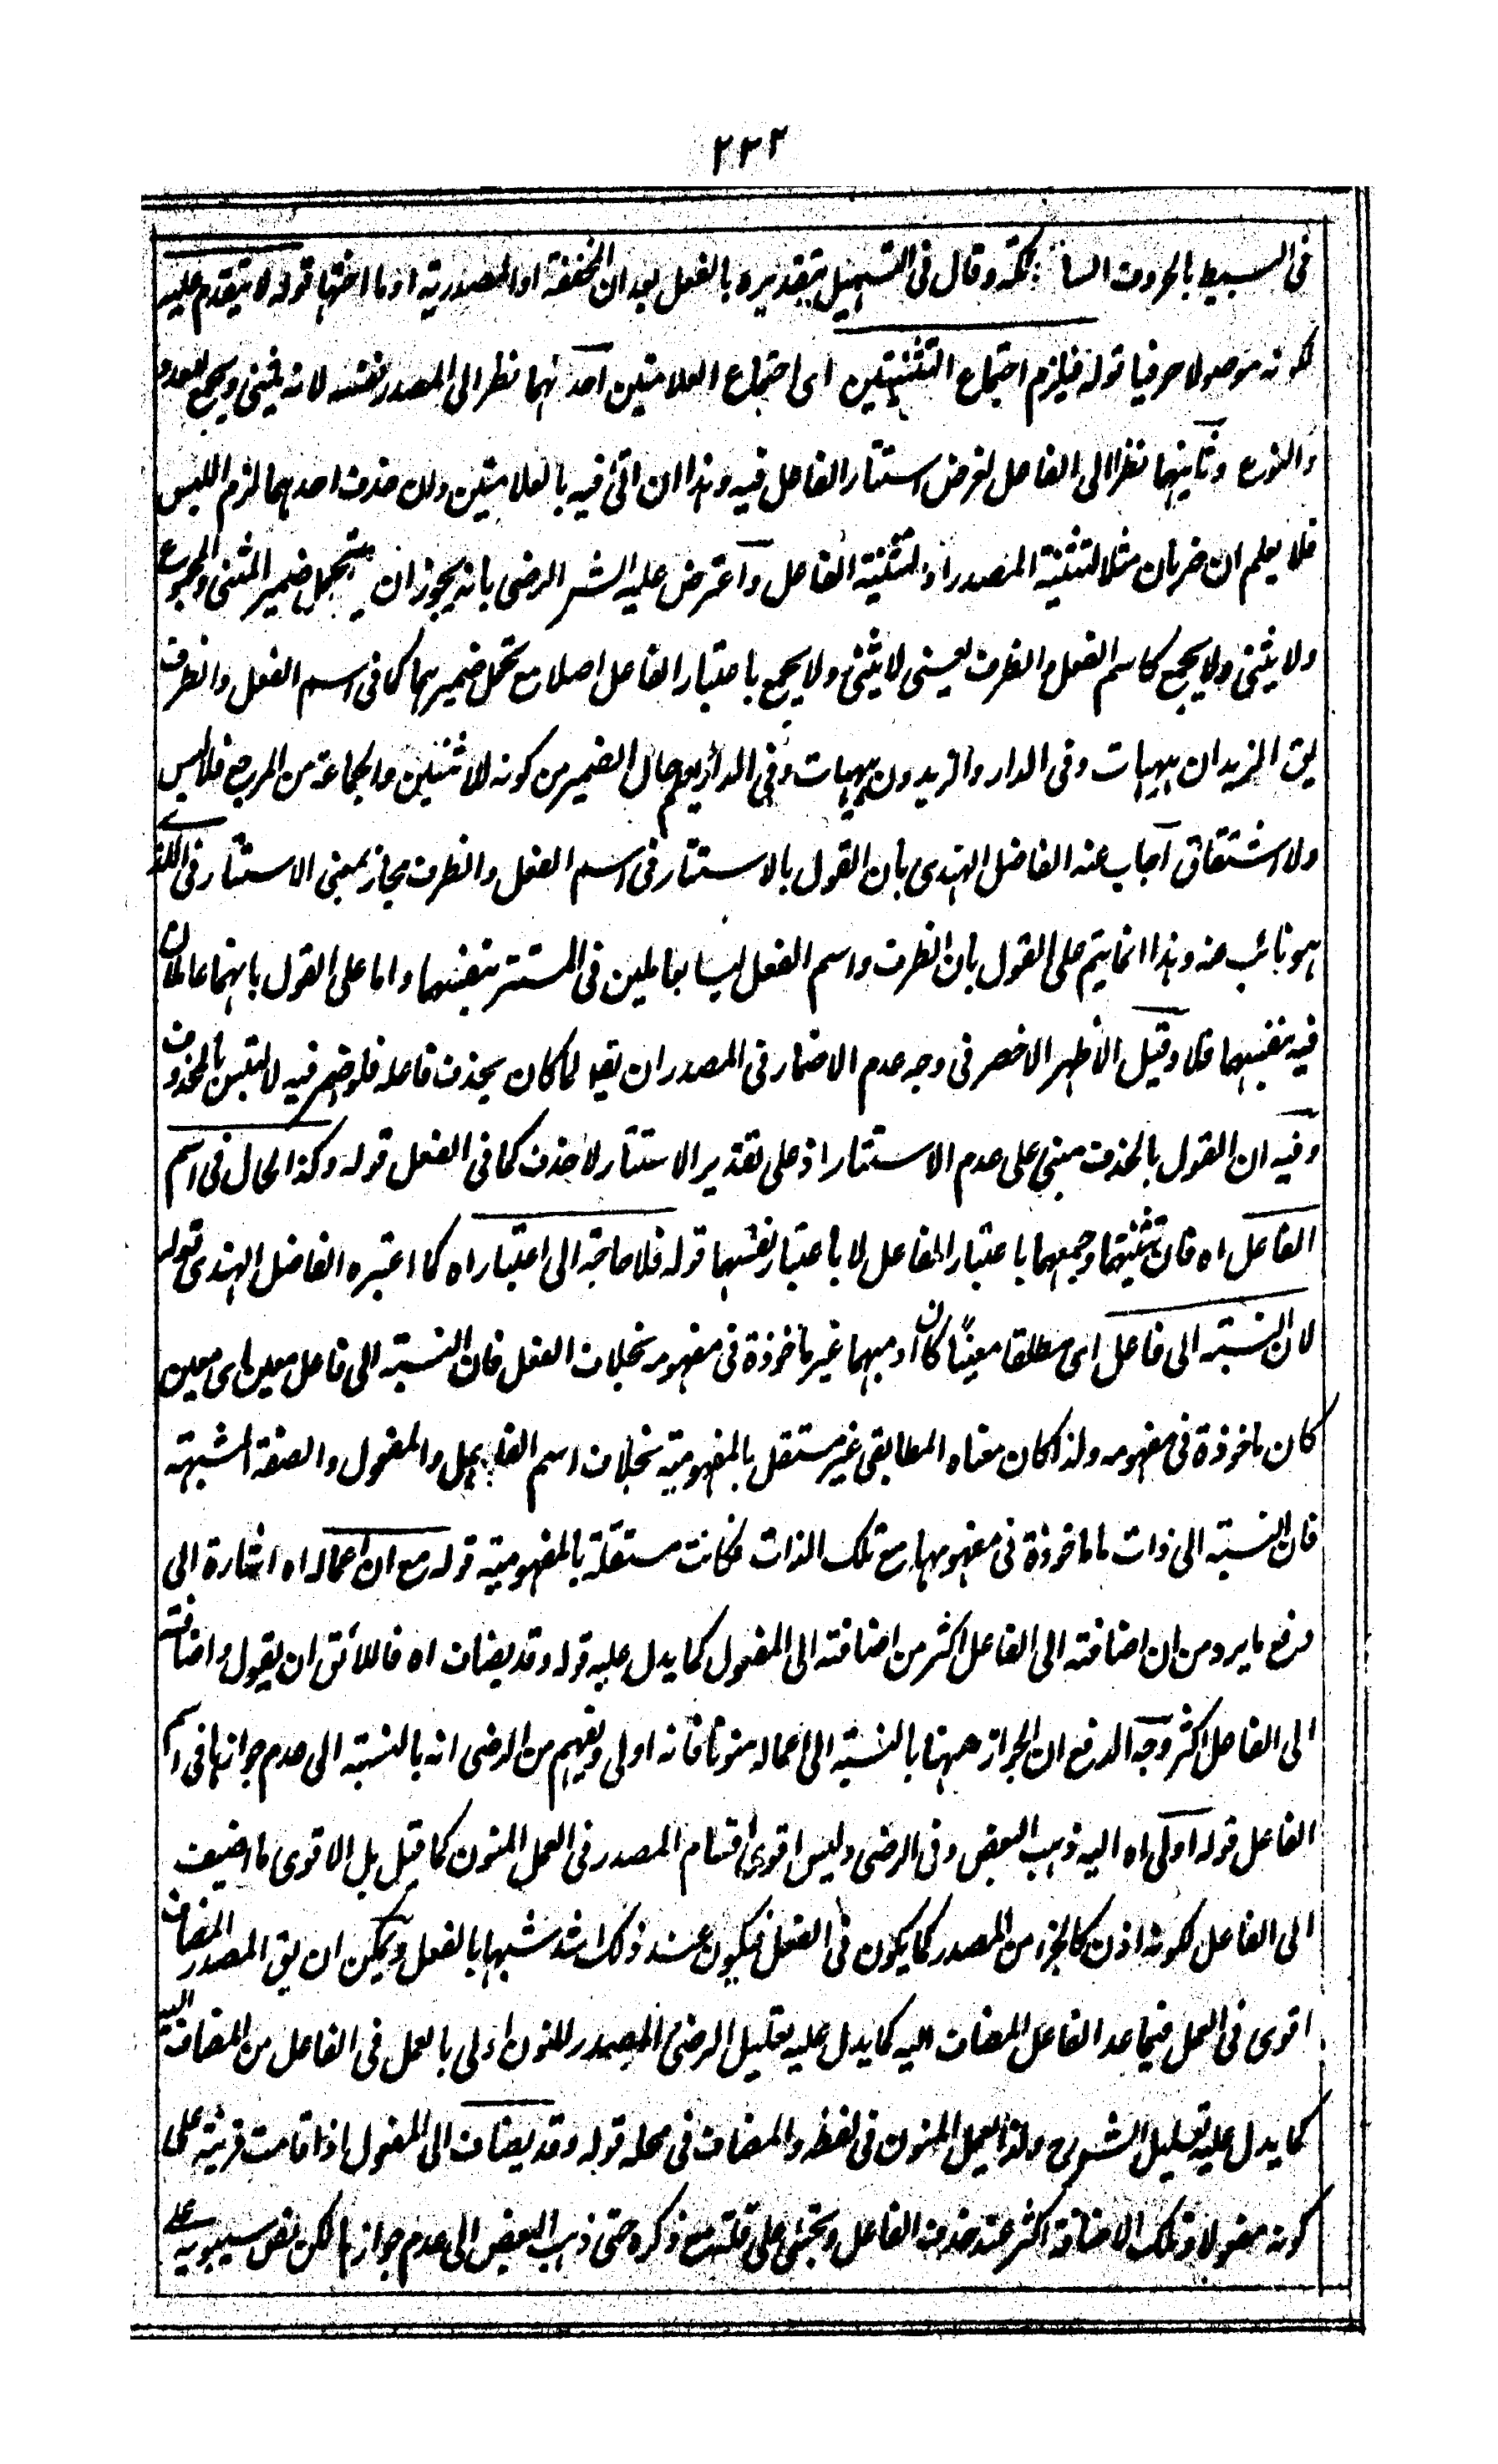 ٢٣٢
فى البسيط بالحروف السا بكة وقال فى التسهيل بتقديره بالفعل بعد ان المخففة او المصدرية او ما اختها قوله لا يتقدم عليه
لكونه موصولا حرفيا قوله فيلزم اجتماع التثنيتين اى اجتماع العلامتين احدىهما نظرا الى المصدر نفسه لانه يثنى ويجمع للعدد
والنوع وثانيتهما نظرا الى الفاعل لفرض استتار الفاعل فيه وهذا ان اتى فيه بالعلامتين ولن حذف احدهما لزم اللبس
فلا يعلم ان ضربان مثلا لتثنية المصدر او لتثنية الفاعل واعترض عليه الشر الرضى بانه يجوز ان يتحمل ضمير المثنى والمجموع
ولا يثنى ولا يجمع كاسم الفعل والظرف يعنى لا يثنى ولا يجمع باعتبار الفاعل اصلا مع تحمل ضميرهما كما فى اسم الفعل والظرف
يق الزيدان هيهات وفى الدار والزيدون هيهات وفى الدار يعلم حال الضمير من كونه لاثنين والجماعة من المرجع فلا لبس
ولا اشتقاق اجاب عنه الفاضل الهندى بان القول بالاستتار فى اسم الفعل والظرف مجاز بمعنى الاستتار فى الذى
هو نائب عنه وهذا انما يتم على القول بان الظرف واسم الفعل ليسا بعاملين فى المستتر بنفسهما واما على القول بانهما عاملان
فيه بنفسهما فلا وقيل الاظهر الاخصر فى وجه عدم الاضمار فى المصدر ان يقو لما كان يحذف فاعله فلو ضمر فيه لالتبس بالمحذوف
وفيه ان القول بالحذف مبنى على عدم الاستتار اذ على تقدير الاستتار لا حذف كما فى الفعل قوله وكذا الحال فى اسم
الفاعل اه فان تثنيتهما وجمعهما باعتبار الفاعل لا باعتبار نفسهما قوله فلا حاجة الى اعتباراه كما اعتبره الفاضل الهندى قوله
لان النسبة الى فاعل اى مطلقا معينا كان او مبهما غير ماخوذة فى مفهومه بخلاف الفعل فان النسبة الى فاعل معين اى معين
كان ماخوذة فى مفهومه ولذا كان معناه المطابقى غير مستقل بالمفهومية بخلاف اسم الفاعل والمفعول والصفة المشبهة
فان النسبة الى ذات ما ماخوذة فى مفهومها مع تلك الذات فكانت مستقلة بالمفهومية قوله مع ان اعماله اه اشارة الى
دفع ما يرد من ان اضافته الى الفاعل اكثر من اضافته الى المفعول كما يدل عليه قوله وقد يضاف اه فاللائق ان يقول واضافته
الى الفاعل اكثر وجه الدفع ان الجواز ههنا بالنسبة الى اعماله منونا فانه اولى ويفهم من الرضى انه بالنسبة الى عدم جوازها فى اسم
الفاعل قوله اولى اه اليه ذهب البعض وفى الرضى وليس اقوى اقسام المصدر فى العمل المنون كما قيل بل الاقوى ما اضيف
الى الفاعل لكونه اذن كالجزء من المصدر كما يكون فى الفعل فيكون عند ذلك اشد شبها بالفعل ويمكن ان يق المصدر المضاف
اقوى فى العمل فيما عدا الفاعل المضاف اليه كما يدل عليه تعليل الرضى المصدر المنون اولى بالعمل فى الفاعل من المضاف اليه
كما يدل عليه تعليل الشرح ولذا يعمل المنون فى لفظه والمضاف فى محله قوله وقد يضاف الى المفعول اذا قامت قرينة على
كونه مفعولا وتلك الاضافة اكثر عند حذف الفاعل وتجئ على قلة مع ذكره حتى ذهب البعض الى عدم جوازها لكن نص سيبويه على